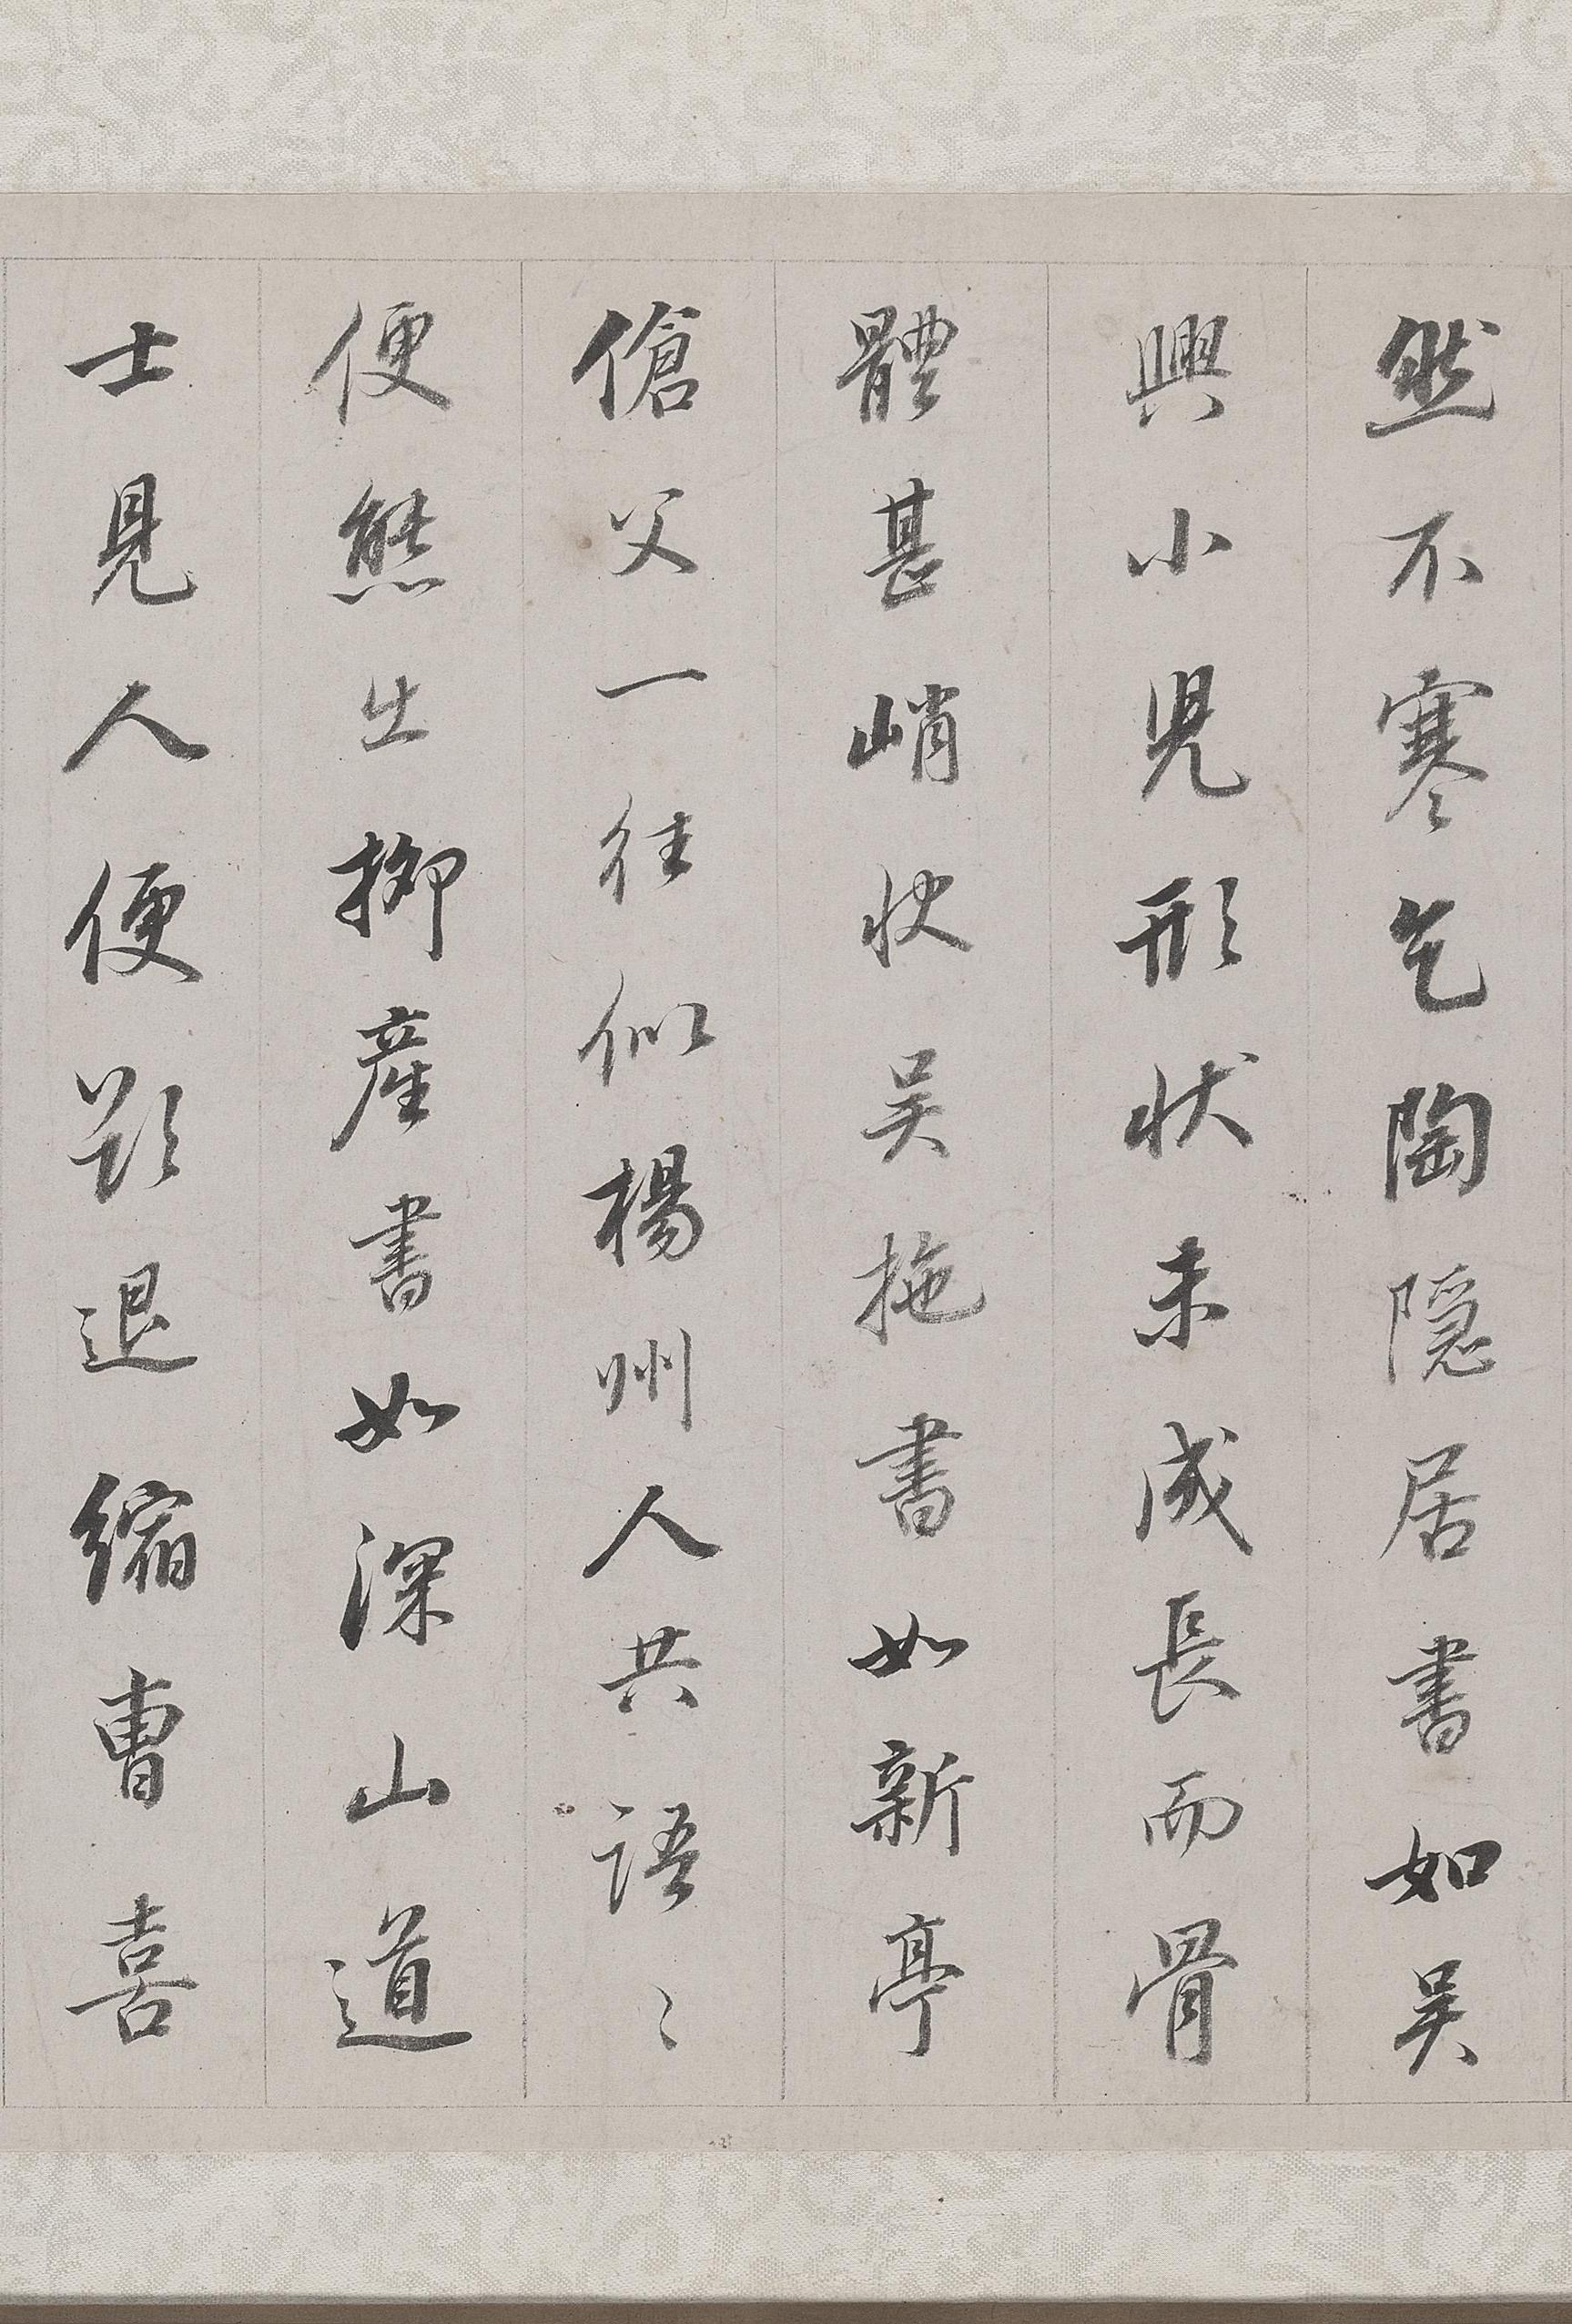 然不寒乞陶隱居書如吳
興小兒形狀未成長而骨
體甚峭快吳拖書如新亭
傖父一往似楊州人共語〻
便態出柳產書如深山道
士見人便欲退縮曹喜